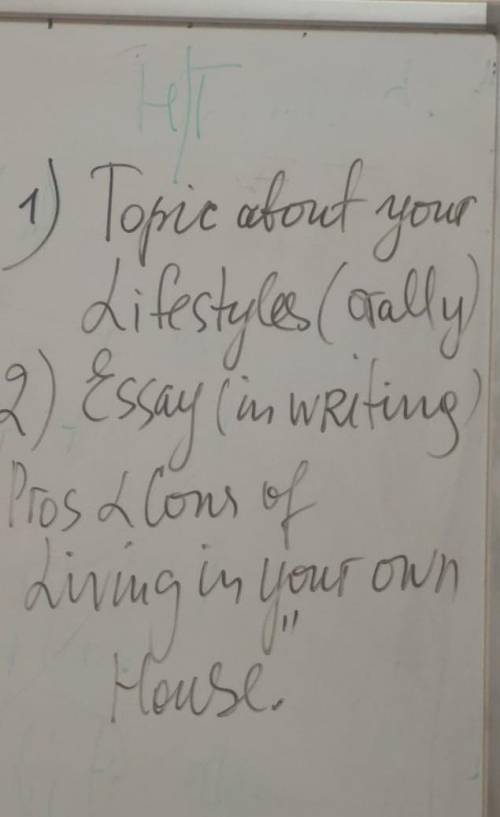 H/T
1) Topic about your
Lifestyles (orally)
2) Essay (in writing)
Pros & Cons of
Living in your own
House."